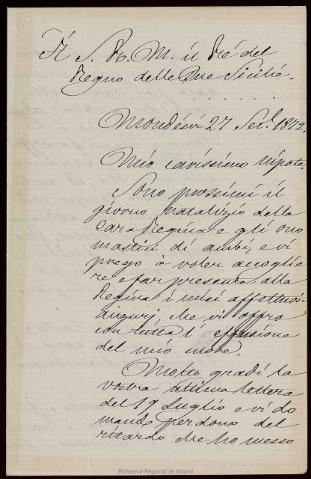 A S. R. M. il Ré del
Regno delle Due Sicilie.
27 Set. 1872.
Mio carissimo Nipote.
Sono prossimi il
giorno natalizio della
cara Regina e gli ono
mastici di ambi, e vi
prego à voler accoglie
re e far presente alla
Regina i miei affettuosi
augurj, che vi offro
con tutta l'effusione
del mio
Molto gradì la
vostra ultima lettera
del 19 Luglio e vi do
mando perdono del
ritardo che ho messo
Biblioteca Regional de Madrid